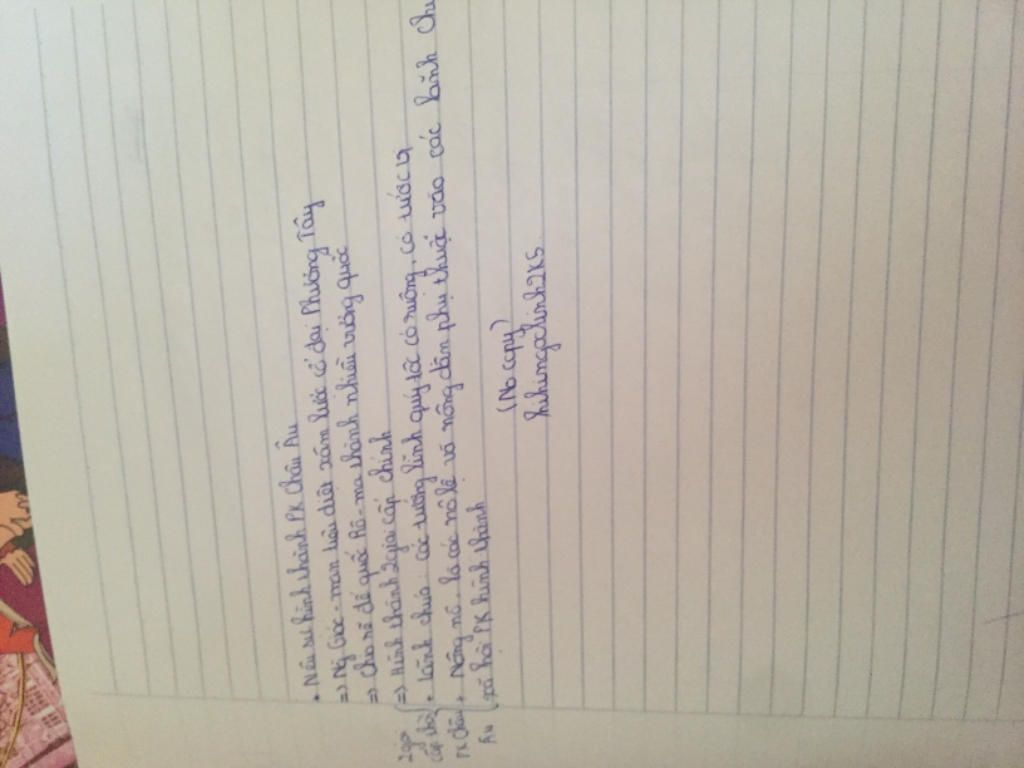 • Nêu sự hình thành PK Châu Âu
=> Ng Giéc-man tiêu diệt xâm lược cổ đại Phương Tây
=> Chia rẽ đế quốc Rô-ma thành nhiều vương quốc
=> Hình thành 2 giai cấp chính
+ Lãnh chúa: các tướng lĩnh quý tộc có ruộng, có tước vị
+ Nông nô: là các nô lệ và nông dân phụ thuộc vào các lãnh chú
xã hội PK hình thành
2 giai
cấp
PK Châu
Âu
(No copy)